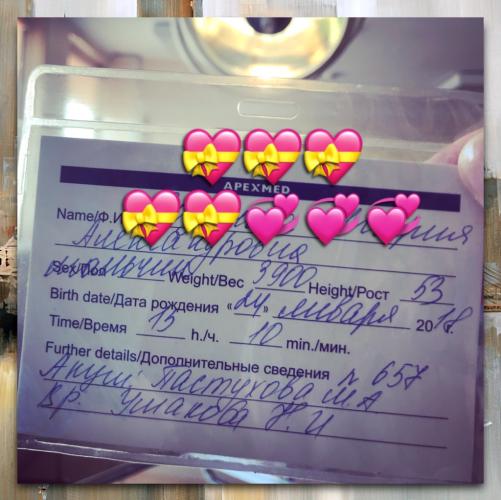 APEXMED
Name/Ф.И
Александровна
Sex/Пол мальчик Weight/Вес 3900 Height/Рост 53
Birth date/Дата рождения «24» января 2018
Time/Время 15 h./ч. 10 min./мин.
Further details/Дополнительные сведения п 657
Акуш. Пастухова М А
Вр. Ушакова Н. И